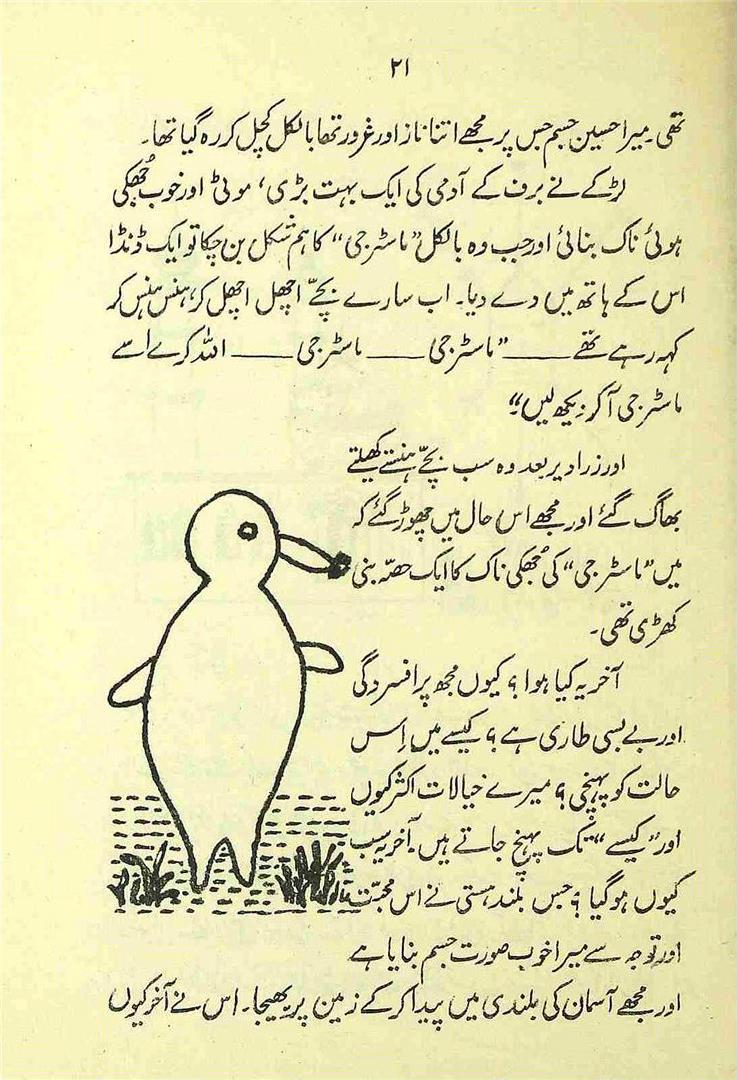 ۲۱
تھی۔ میرا حسین جسم جس پر مجھے اتنا ناز اور غرور تھا بالکل کچل کر رہ گیا تھا۔
لڑکے نے برف کے آدمی کی ایک بہت بڑی، موٹی اور خوب جُھکی
ہوئی ناک بنائی اور جب وہ بالکل ”ماسٹر جی“ کا ہم شکل بن چکا تو ایک ڈنڈا
اس کے ہاتھ میں دے دیا۔ اب سارے بچّے اچھل اچھل کر، ہنس ہنس کر
کہہ رہے تھے ——— ”ماسٹر جی ——— ماسٹر جی ——— اللہ کرے اسے
ماسٹر جی آ کر دیکھ لیں“
اور ذرا دیر بعد وہ سب بچّے ہنستے کھیلتے
بھاگ گئے اور مجھے اس حال میں چھوڑ گئے کہ
میں ”ماسٹر جی“ کی جُھکی ناک کا ایک حصّہ بنی
کھڑی تھی۔
آخر یہ کیا ہوا؟ کیوں مجھ پر افسردگی
اور بے بسی طاری ہے؟ کیسے میں اِس
حالت کو پہنچی؟ میرے خیالات اکثر کیوں
اور ”کیسے“ تک پہنچ جاتے ہیں۔ آخر یہ سب
کیوں ہو گیا؟ جس بلند ہستی نے اس محبّت
اور توجہ سے میرا خوب صورت جسم بنایا ہے
اور مجھے آسمان کی بلندی میں پیدا کر کے زمین پر بھیجا۔ اس نے آخر کیوں